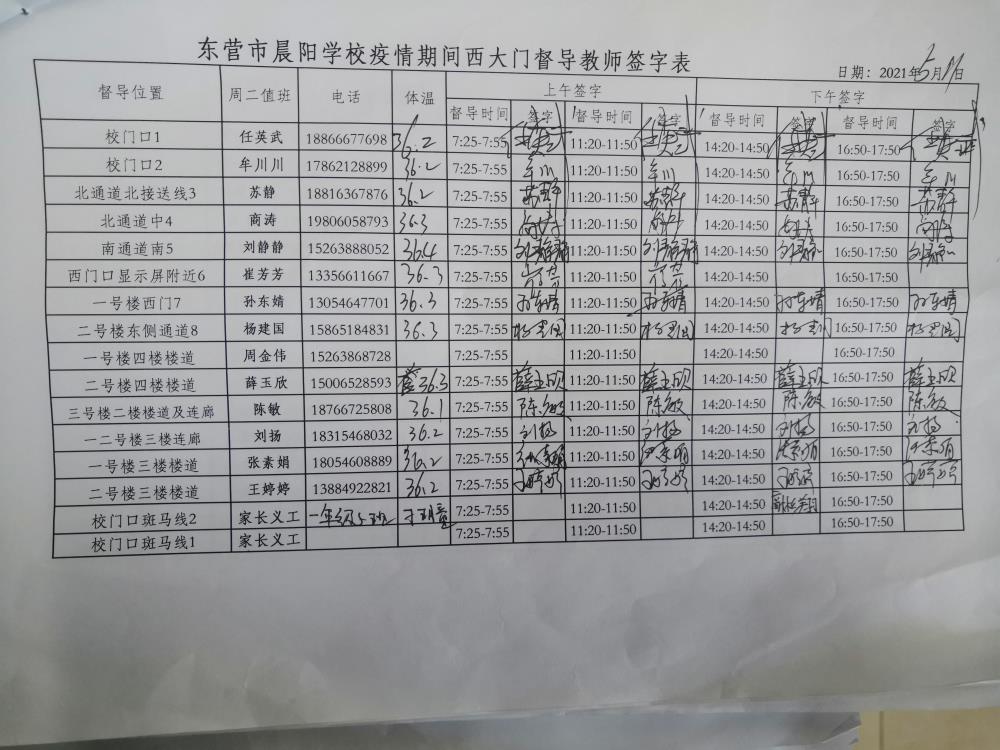 东营市晨阳学校疫情期间西大门督导教师签字表
日期：2021年5月11日
督导位置 周二值班 电话 体温 上午签字 下午签字
督导时间 签字 督导时间 签字 督导时间 签字 督导时间 签字
校门口1 任英武 18866677698 36.2 7:25-7:55 11:20-11:50 14:20-14:50 16:50-17:50
校门口2 牟川川 17862128899 36.2 7:25-7:55 牟川 11:20-11:50 牟川 14:20-14:50 牟川 16:50-17:50 牟川
北通道北接送线3 苏静 18816367876 36.2 7:25-7:55 苏静 11:20-11:50 苏静 14:20-14:50 苏静 16:50-17:50 苏静
北通道中4 商涛 19806058793 36.3 7:25-7:55 商涛 11:20-11:50 商涛 14:20-14:50 商涛 16:50-17:50 商涛
南通道南5 刘静静 15263888052 36.4 7:25-7:55 刘静静 11:20-11:50 刘静静 14:20-14:50 刘静静 16:50-17:50 刘静静
西门口显示屏附近6 崔芳芳 13356611667 36.3 7:25-7:55 11:20-11:50 14:20-14:50 16:50-17:50
一号楼西门7 孙东婧 13054647701 36.3 7:25-7:55 孙东婧 11:20-11:50 孙东婧 14:20-14:50 孙东婧 16:50-17:50 孙东婧
二号楼东侧通道8 杨建国 15865184831 36.3 7:25-7:55 杨建国 11:20-11:50 杨建国 14:20-14:50 杨建国 16:50-17:50 杨建国
一号楼四楼楼道 周金伟 15263868728 7:25-7:55 11:20-11:50 14:20-14:50 16:50-17:50
二号楼四楼楼道 薛玉欣 15006528593 36.3 7:25-7:55 薛玉欣 11:20-11:50 薛玉欣 14:20-14:50 薛玉欣 16:50-17:50 薛玉欣
三号楼二楼楼道及连廊 陈敏 18766725808 36.1 7:25-7:55 陈敏 11:20-11:50 陈敏 14:20-14:50 陈敏 16:50-17:50 陈敏
一二号楼三楼连廊 刘扬 18315468032 36.2 7:25-7:55 刘扬 11:20-11:50 刘扬 14:20-14:50 刘扬 16:50-17:50 刘扬
一号楼三楼楼道 张素娟 18054608889 36.2 7:25-7:55 张素娟 11:20-11:50 张素娟 14:20-14:50 张素娟 16:50-17:50 张素娟
二号楼三楼楼道 王婷婷 13884922821 36.2 7:25-7:55 王婷婷 11:20-11:50 王婷婷 14:20-14:50 王婷婷 16:50-17:50 王婷婷
校门口斑马线2 家长义工 7:25-7:55 11:20-11:50 14:20-14:50 16:50-17:50
校门口斑马线1 家长义工 7:25-7:55 11:20-11:50 14:20-14:50 16:50-17:50